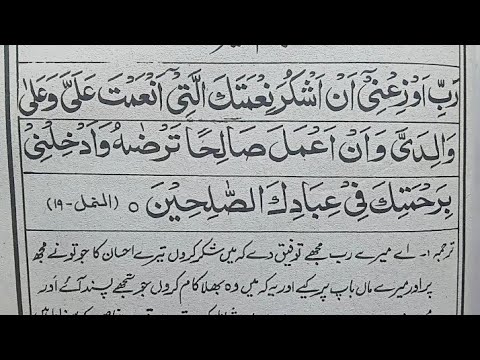 رَبِّ اَوْزِعْنِیْٓ اَنْ اَشْكُرَ نِعْمَتَكَ الَّتِیْٓ اَنْعَمْتَ عَلَیَّ وَعَلٰی
وَالِدَیَّ وَاَنْ اَعْمَلَ صَالِحًا تَرْضٰهُ وَاَدْخِلْنِیْ
بِرَحْمَتِكَ فِیْ عِبَادِكَ الصّٰلِحِیْنَ ○ (النمل - ۱۹)
ترجمہ :- اے میرے رب مجھے توفیق دے کہ میں شکر کروں تیرے احسان کا جو تو نے مجھ
پر اور میرے ماں باپ پر کیے اور یہ کہ میں وہ بھلا کام کروں جو تجھے پسند آئے اور